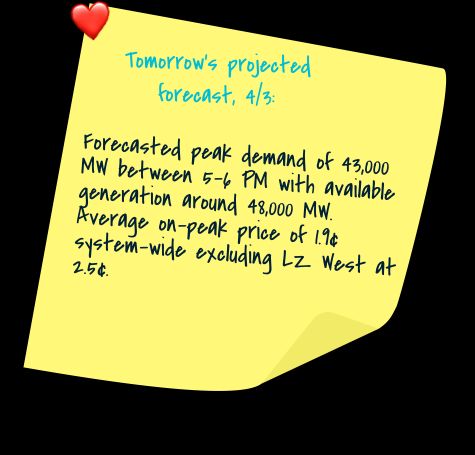 Tomorrow's projected
forecast, 4/3:
Forecasted peak demand of 43,000
MW between 5-6 PM with available
generation around 48,000 MW.
Average on-peak price of 1.9¢
system-wide excluding LZ West at
2.5¢.